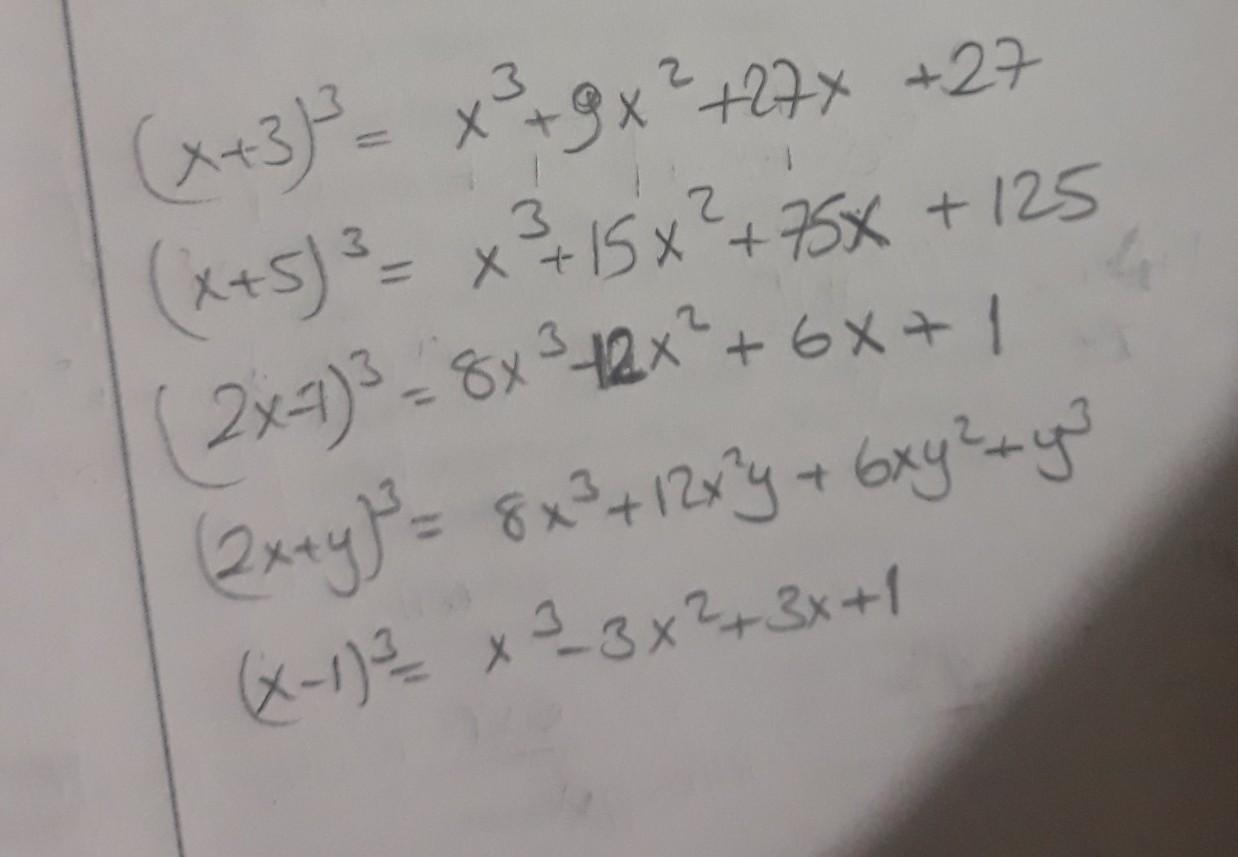 (x+3)³ = x³+9x²+27x +27
(x+5)³ = x³+15x²+75x + 125
(2x-1)³ = 8x³-12x² + 6x + 1
(2x+y)³ = 8x³+12x²y + 6xy²+y³
(x-1)³ = x³-3x²+3x+1